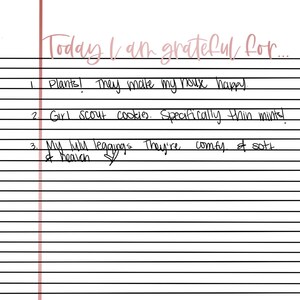 Today I am grateful for...
1. Plants! They make my house happy.
2. Girl Scout cookies. Specifically thin mints!
3. My lulu leggings They're comfy & soft
& heaven